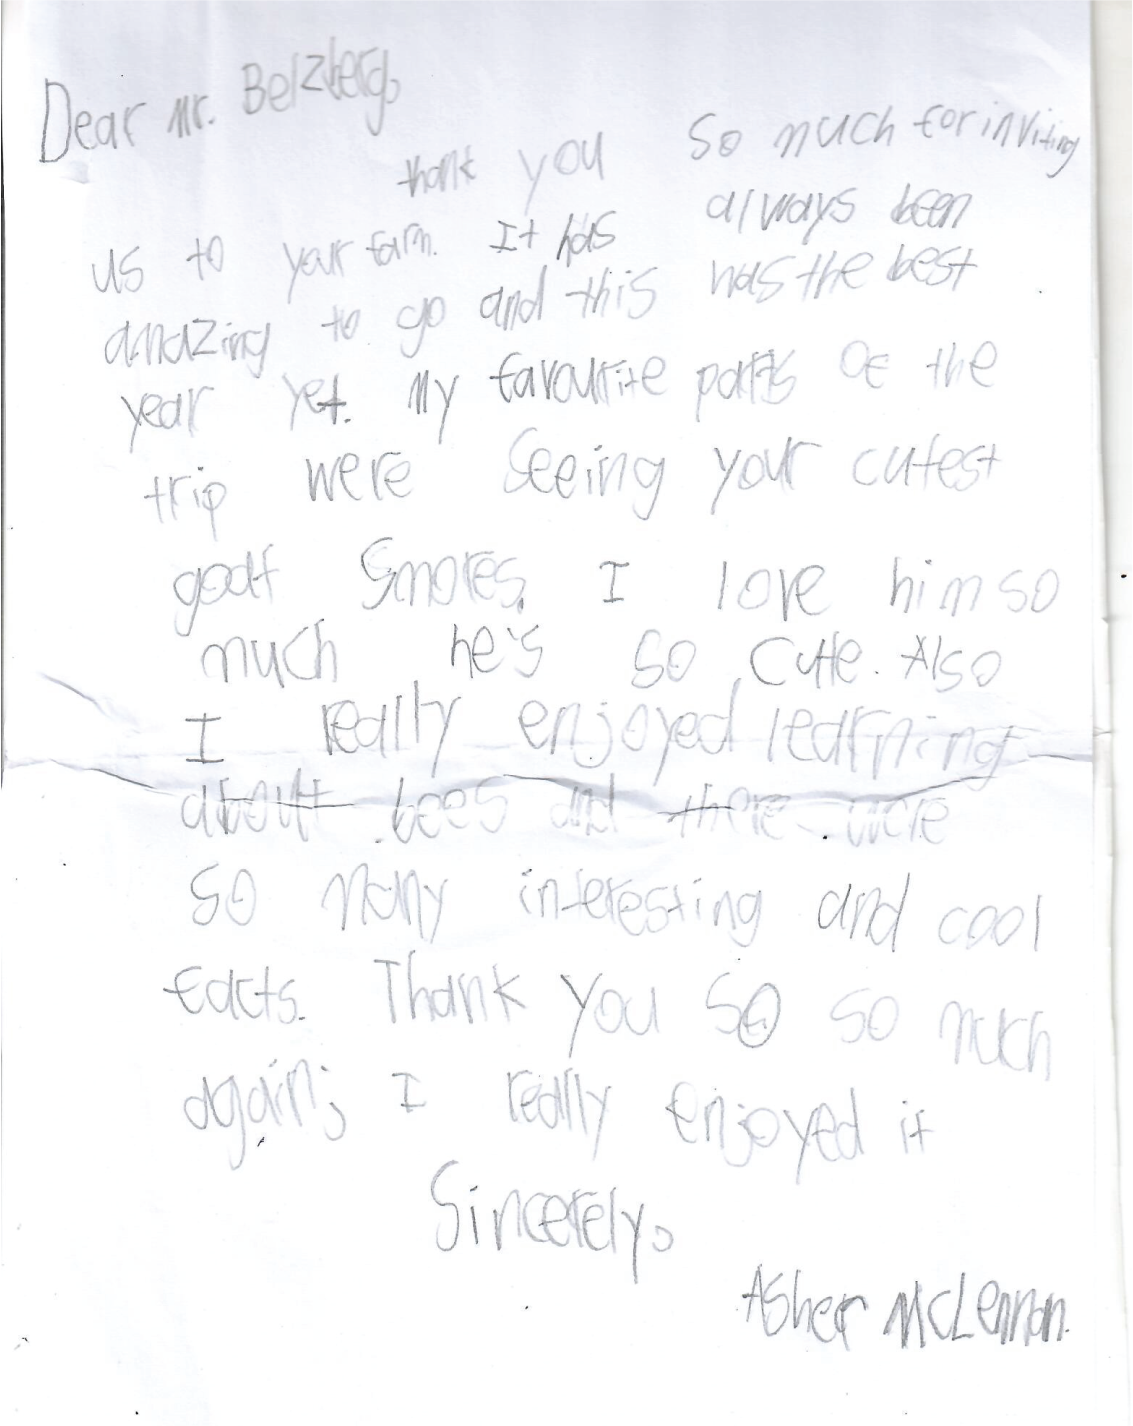 Dear Mr. Belzberg,
thank you so much for inviting
us to your farm. It has always been
amazing to go and this was the best
year yet. My favourite parts of the
trip were seeing your cutest
goat Smores. I love him so
much he's so cute. Also
I really enjoyed learning
about bees and there were
so many interesting and cool
facts. Thank you so so much
again, I really enjoyed it
Sincerely,
Asher McLennan.